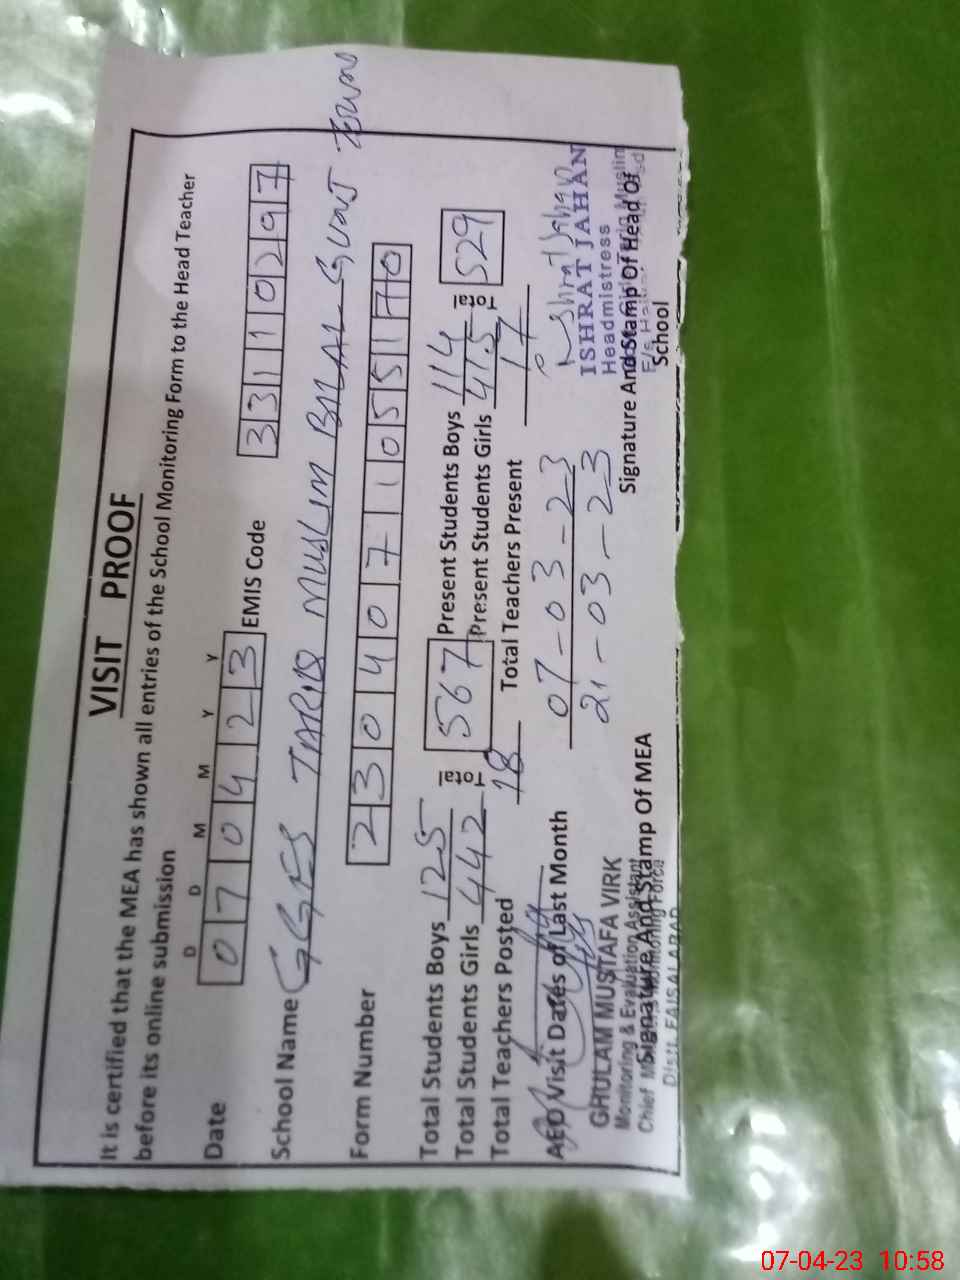 VISIT PROOF
It is certified that the MEA has shown all entries of the School Monitoring Form to the Head Teacher
before its online submission
D D M M Y Y
Date 0 7 0 4 2 3 EMIS Code 3 3 1 1 0 2 9 7
School Name GGES TARIQ MUSLIM BILAL Town
Form Number 2 3 0 4 0 7 1 0 5 5 1 7 0
Total Students Boys 125 Total 567 Present Students Boys 114 Total 529
Total Students Girls 442 Present Students Girls 415
Total Teachers Posted 18 Total Teachers Present 17
AEO Visit Dates of Last Month 07-03-23
21-03-23
Ishrat Jahan
GHULAM MUSTAFA VIRK
Monitoring & Evaluation Assistant
Chief Monitoring Force
Distt. FAISALABAD
Signature And Stamp Of MEA
ISHRAT JAHAN
Headmistress
Signature And Stamp Of Head Of
School
07-04-23 10:58